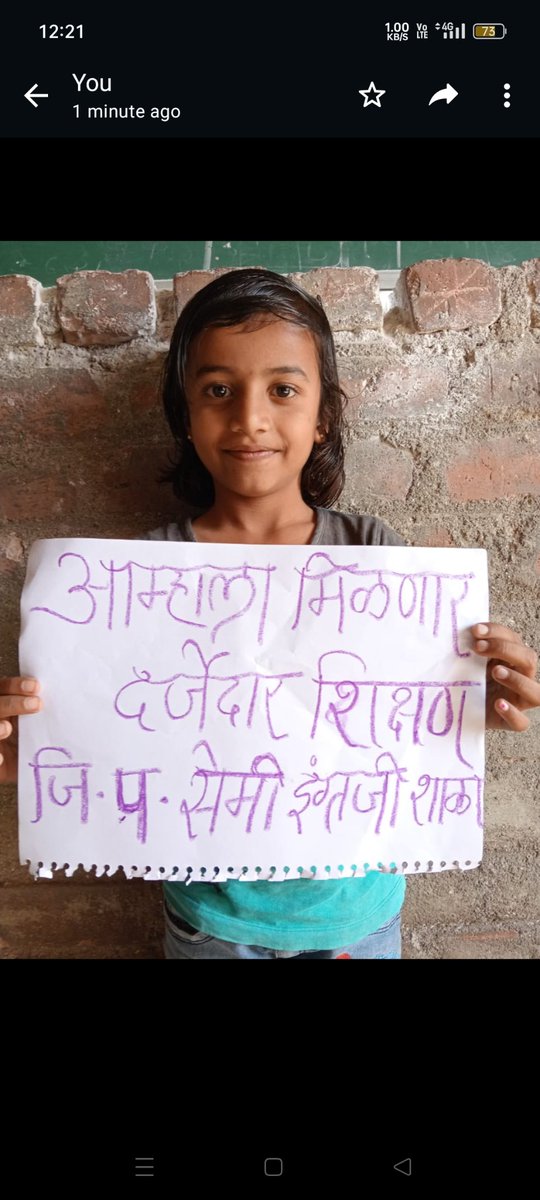 12:21
1.00 KB/S Vo LTE 4G 73
You
1 minute ago
आम्हाला मिळणार
दर्जेदार शिक्षण
जि. प. सेमी इंग्रजी शाळा